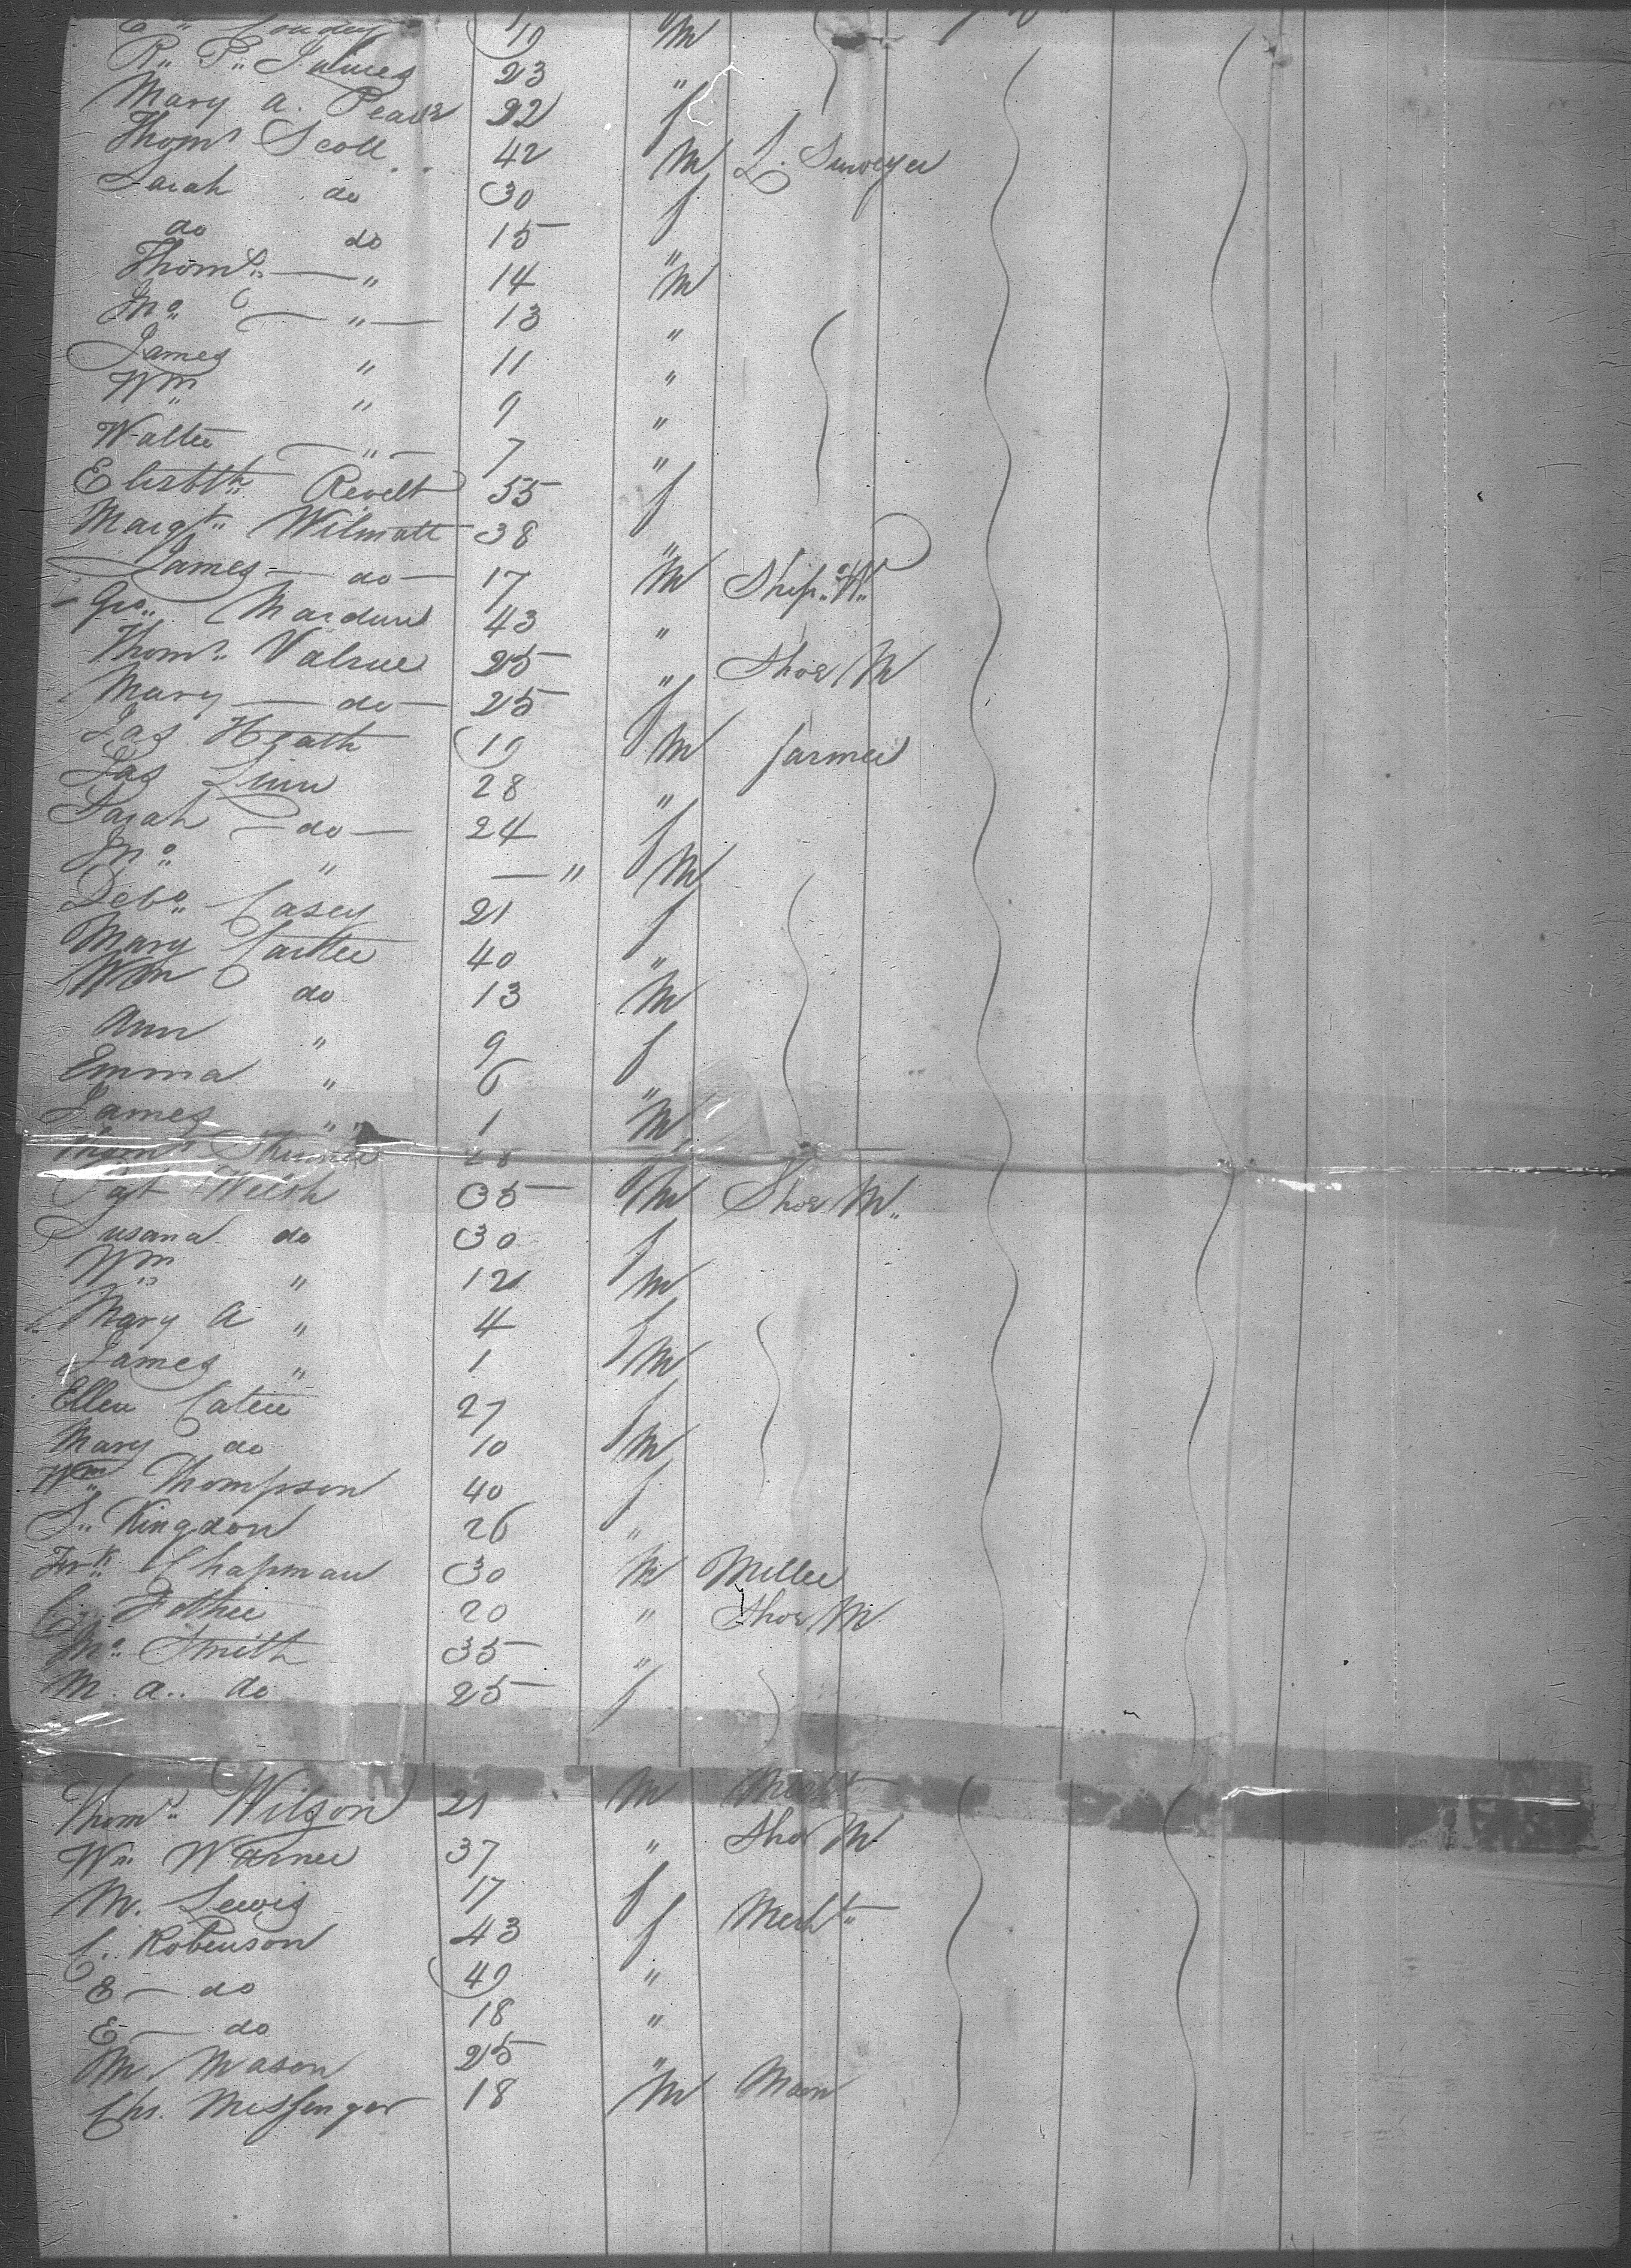 19 M
R. P. James 23 "
Mary A. 22 f
Thoms Scott 42 M L. Surveyer
Sarah do 30 f
do do 15 "
Thoms — " 14 M
Jno — " — 13 "
James " 11 "
Wm " 9 "
Walter — " — 7 "
Elizbth Revelt 55 f
Margt Wilmatt 38 "
James — do — 17 M Ship W
Geo. 43 "
Thoms Valrue 25 " Shoe M
Mary — do — 25 f
Jas Heath 19 M farmer
Jas Linn 28 "
Sarah — do — 24 f
Jno " — " M
Debo Casey 21 f
Mary Carter 40 "
Wm do 13 M
Ann " 9 f
Emma " 6 "
James " 1 M
28
Pat Welsh 35 M Shoe M.
Susana do 30 f
Wm " 12 M
Mary A " 4 f
James " 1 M
Ellen Cater 27 f
Mary do 10 M
Wm Thompson 40 f
S. Kingdon 26 "
Frk Chapman 30 M Miller
C. Father 20 " Shoe M
Jno Smith 35 "
M. A. do 25 f
Thoms Wilson 21 M Mecht
Wm Warner 37 " Shoe M
M. Lewis 17 f
C. Robenson 43 f Mecht
E — do 49 "
E — do 18 "
M. Mason 25 "
Chs. Messenger 18 M